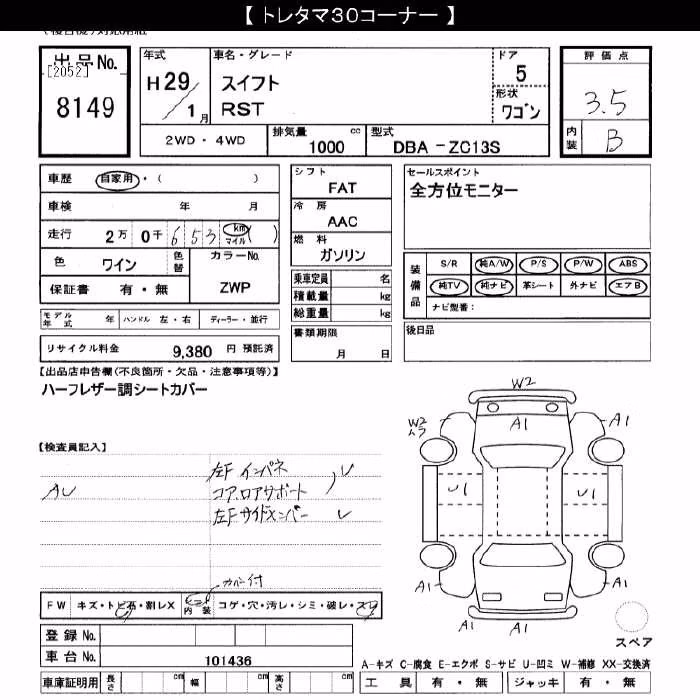 【 トレタマ30コーナー 】
出品No.
[2052]
8149
年式
H29/1月
車名・グレード
スイフト
RST
ドア
5
形状
ワゴン
2WD・4WD
排気量
1000 cc
型式
DBA - ZC13S
評価点
3.5
内装
B
車歴 自家用・( )
車検 年 月
走行 2万 0千 653 km マイル ( )
色 ワイン 色替
カラーNo.
ZWP
保証書 有・無
モデル年式 年 ハンドル 左・右 ディーラー・並行
リサイクル料金 9,380 円 預託済
シフト
FAT
冷房
AAC
燃料
ガソリン
乗車定員 名
積載量 kg
総重量 kg
書類期限
月 日
セールスポイント
全方位モニター
装備品
S/R 純A/W P/S P/W ABS
純TV 純ナビ 革シート 外ナビ エアB
ナビ型番:
後日品
【出品店申告欄(不良箇所・欠品・注意事項等)】
ハーフレザー調シートカバー
【検査員記入】
AU
左Fインパネ
コア,ロアサポート
左Fサイドメンバー
カバー付
FW キズ・トビ石・割レX 内装 コゲ・穴・汚レ・シミ・破レ・スレ
登録No.
車台No. 101436
車庫証明用 長さ cm 幅 cm 高さ cm
W2
W2
A1
A1
A1
U1
U1
A1
A1
A1
A1
スペア
A-キズ C-腐食 E-エクボ S-サビ U-凹ミ W-補修 XX-交換済
工具 有・無 ジャッキ 有・無